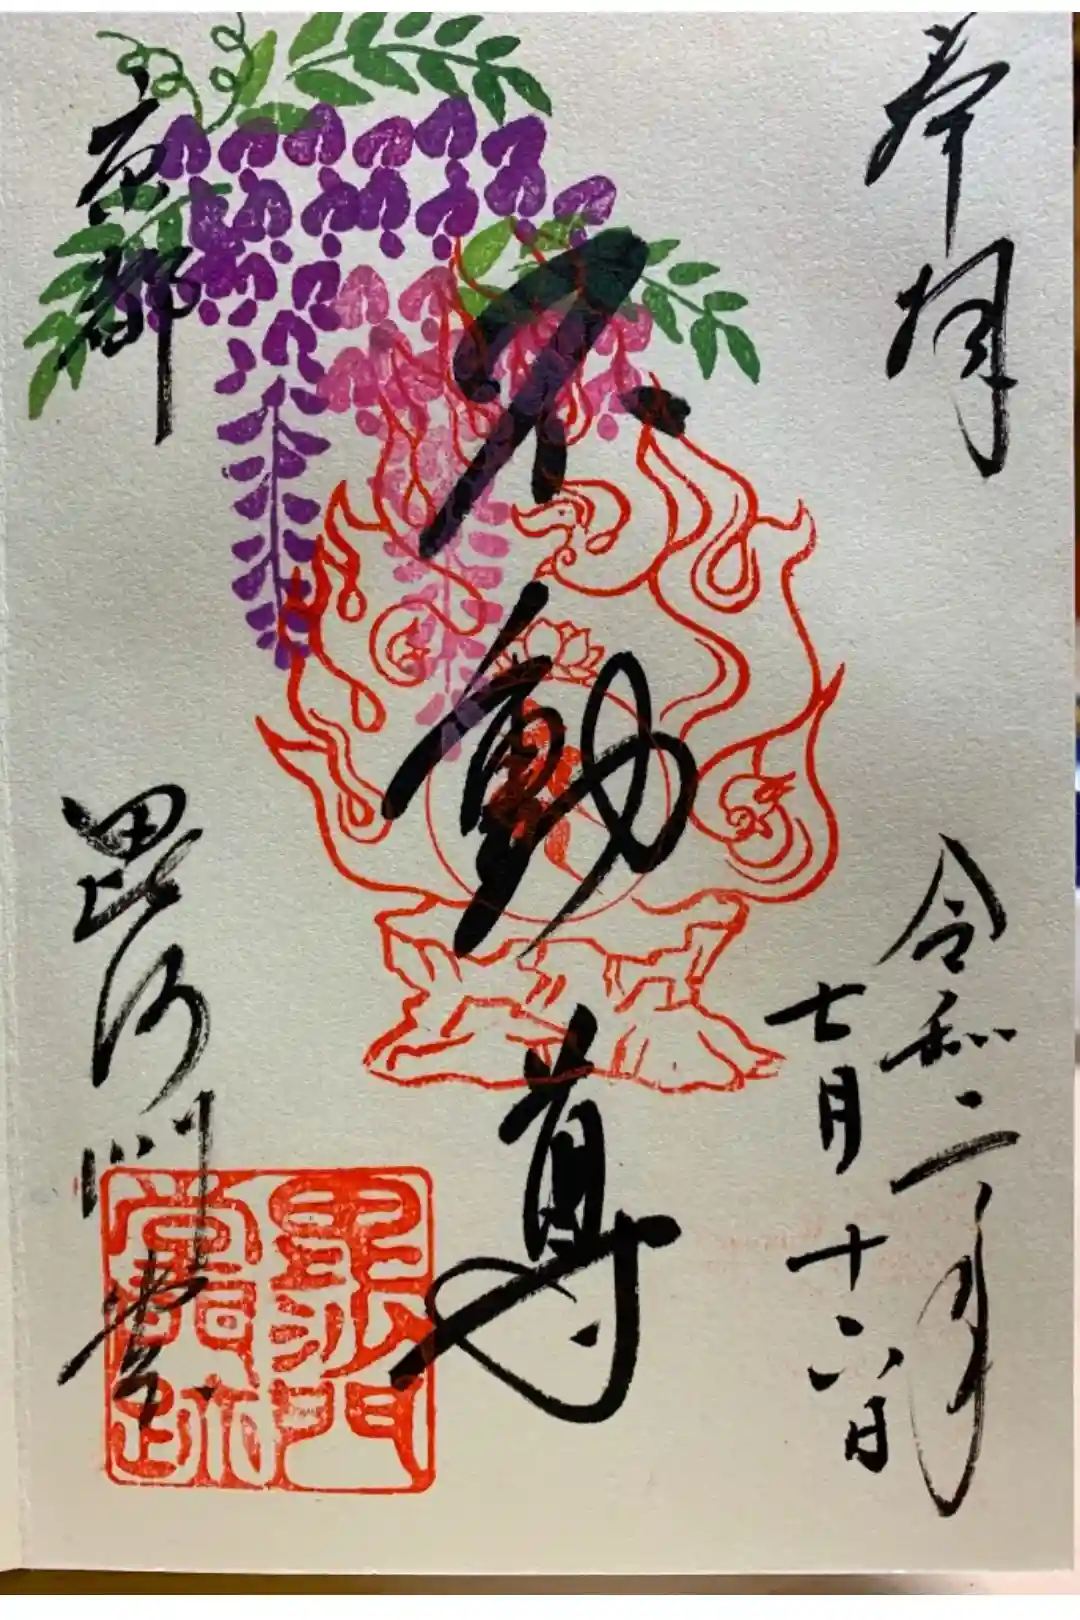 奉拝
令和二年
七月十六日
不動尊
京都
毘沙門堂
毘沙門堂門跡